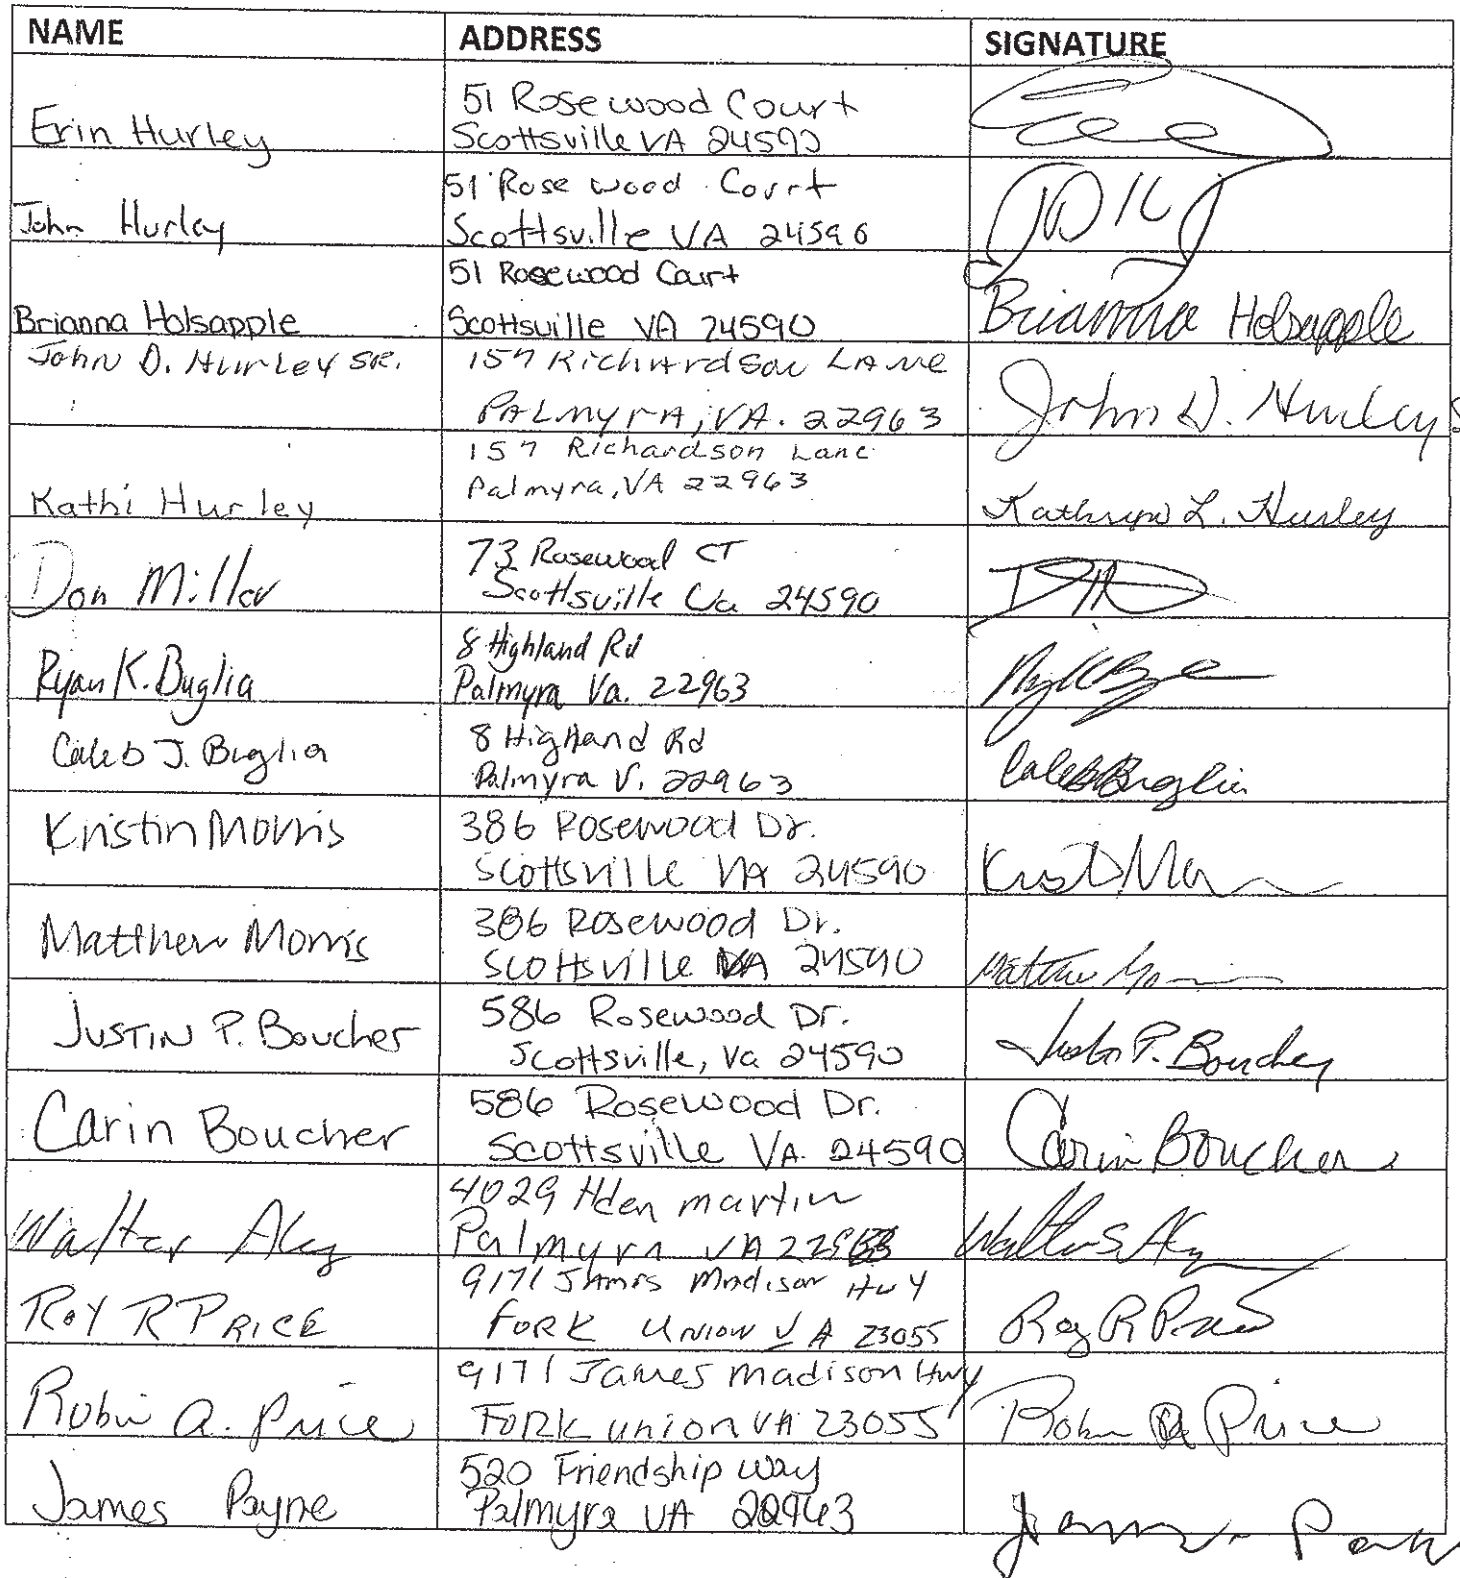 NAME ADDRESS SIGNATURE
Erin Hurley
51 Rosewood Court
Scottsville VA 24590
John Hurley
51 Rose wood Court
Scottsville VA 24590
Brianna Holsapple
51 Rosewood Court
Scottsville VA 24590
Brianna Holsapple
John D. Hurley SR.
157 Richardson Lane
PALMYRA, VA. 22963
John D. Hurley S
Kathi Hurley
157 Richardson Lane
Palmyra, VA 22963
Kathryn L. Hurley
Don Miller
73 Rosewood CT
Scottsville Va 24590
Ryan K. Buglia
8 Highland Rd
Palmyra Va. 22963
Caleb J. Buglia
8 Highland Rd
Palmyra V. 22963
Caleb Buglia
Kristin Morris
386 Rosewood Dr.
Scottsville VA 24590
Matthew Morris
386 Rosewood Dr.
Scottsville VA 24590
Matthew
JUSTIN P. Boucher
586 Rosewood Dr.
Scottsville, Va 24590
Justin P. Boucher
Carin Boucher
586 Rosewood Dr.
Scottsville VA. 24590
Carin Boucher
Walter
4029 martin
Palmyra VA
Walter S.
ROY R PRICE
9171 James Madison Hwy
FORK UNION VA 23055
Roy R Price
Robin A. Price
9171 James Madison Hwy
FORK union VA 23055
Robin A Price
James Payne
520 Friendship Way
Palmyra VA 22963